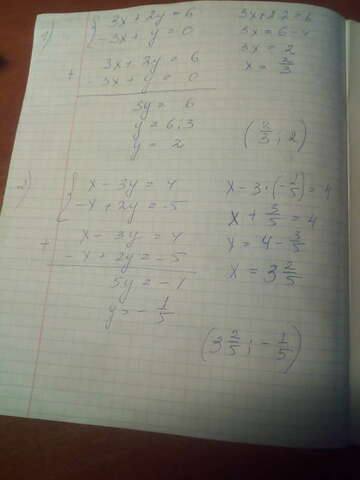 1) { 3x + 2y = 6
- 3x + y = 0
+ 3x + 2y = 6
- 3x + y = 0
3y = 6
y = 6 : 3
y = 2
3x + 2·2 = 6
3x = 6 - 4
3x = 2
x = 2/3
(2/3 ; 2)
2) { x - 3y = 4
-x + 2y = -5
+ x - 3y = 4
- x + 2y = -5
5y = -1
y = - 1/5
x - 3·(-1/5) = 4
x + 3/5 = 4
x = 4 - 3/5
x = 3 2/5
(3 2/5 ; - 1/5)